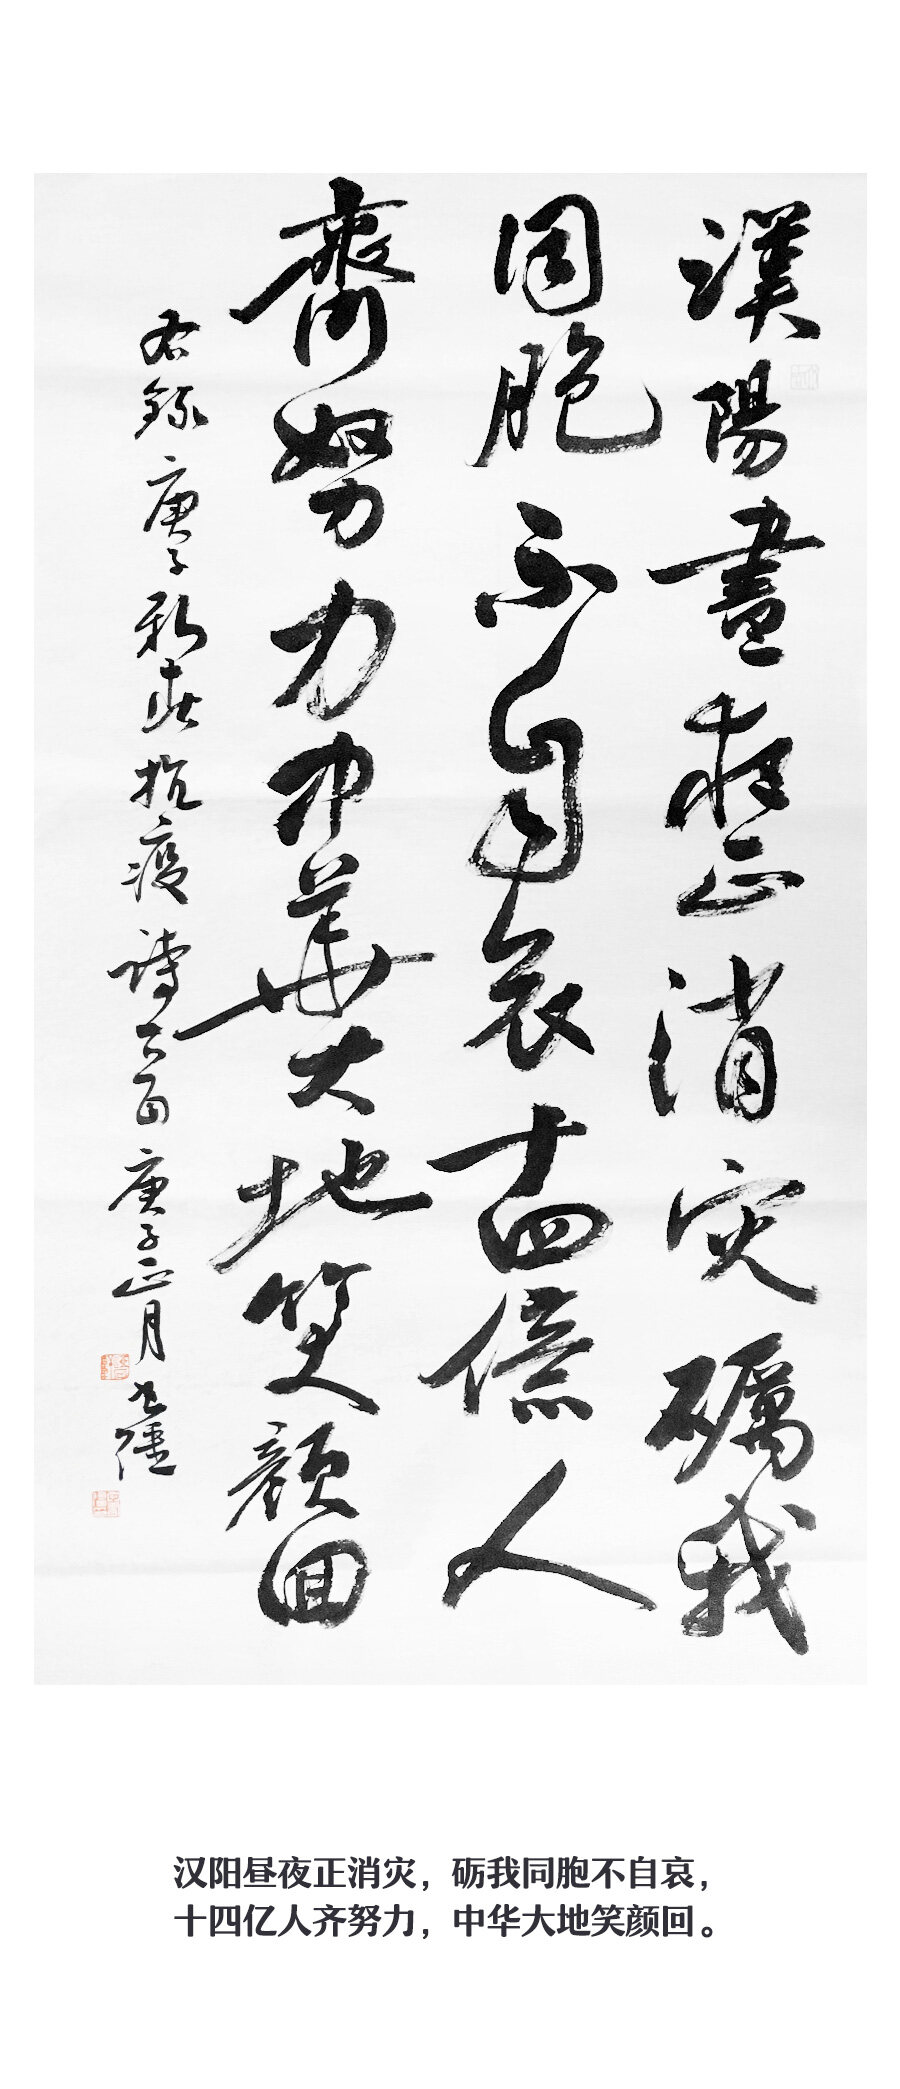 漢陽晝夜正消灾礪我
同胞不自哀十四億人
齊努力中華大地笑顔回
右錄庚子新春抗疫詩 庚子正月
汉阳昼夜正消灾，砺我同胞不自哀，
十四亿人齐努力，中华大地笑颜回。